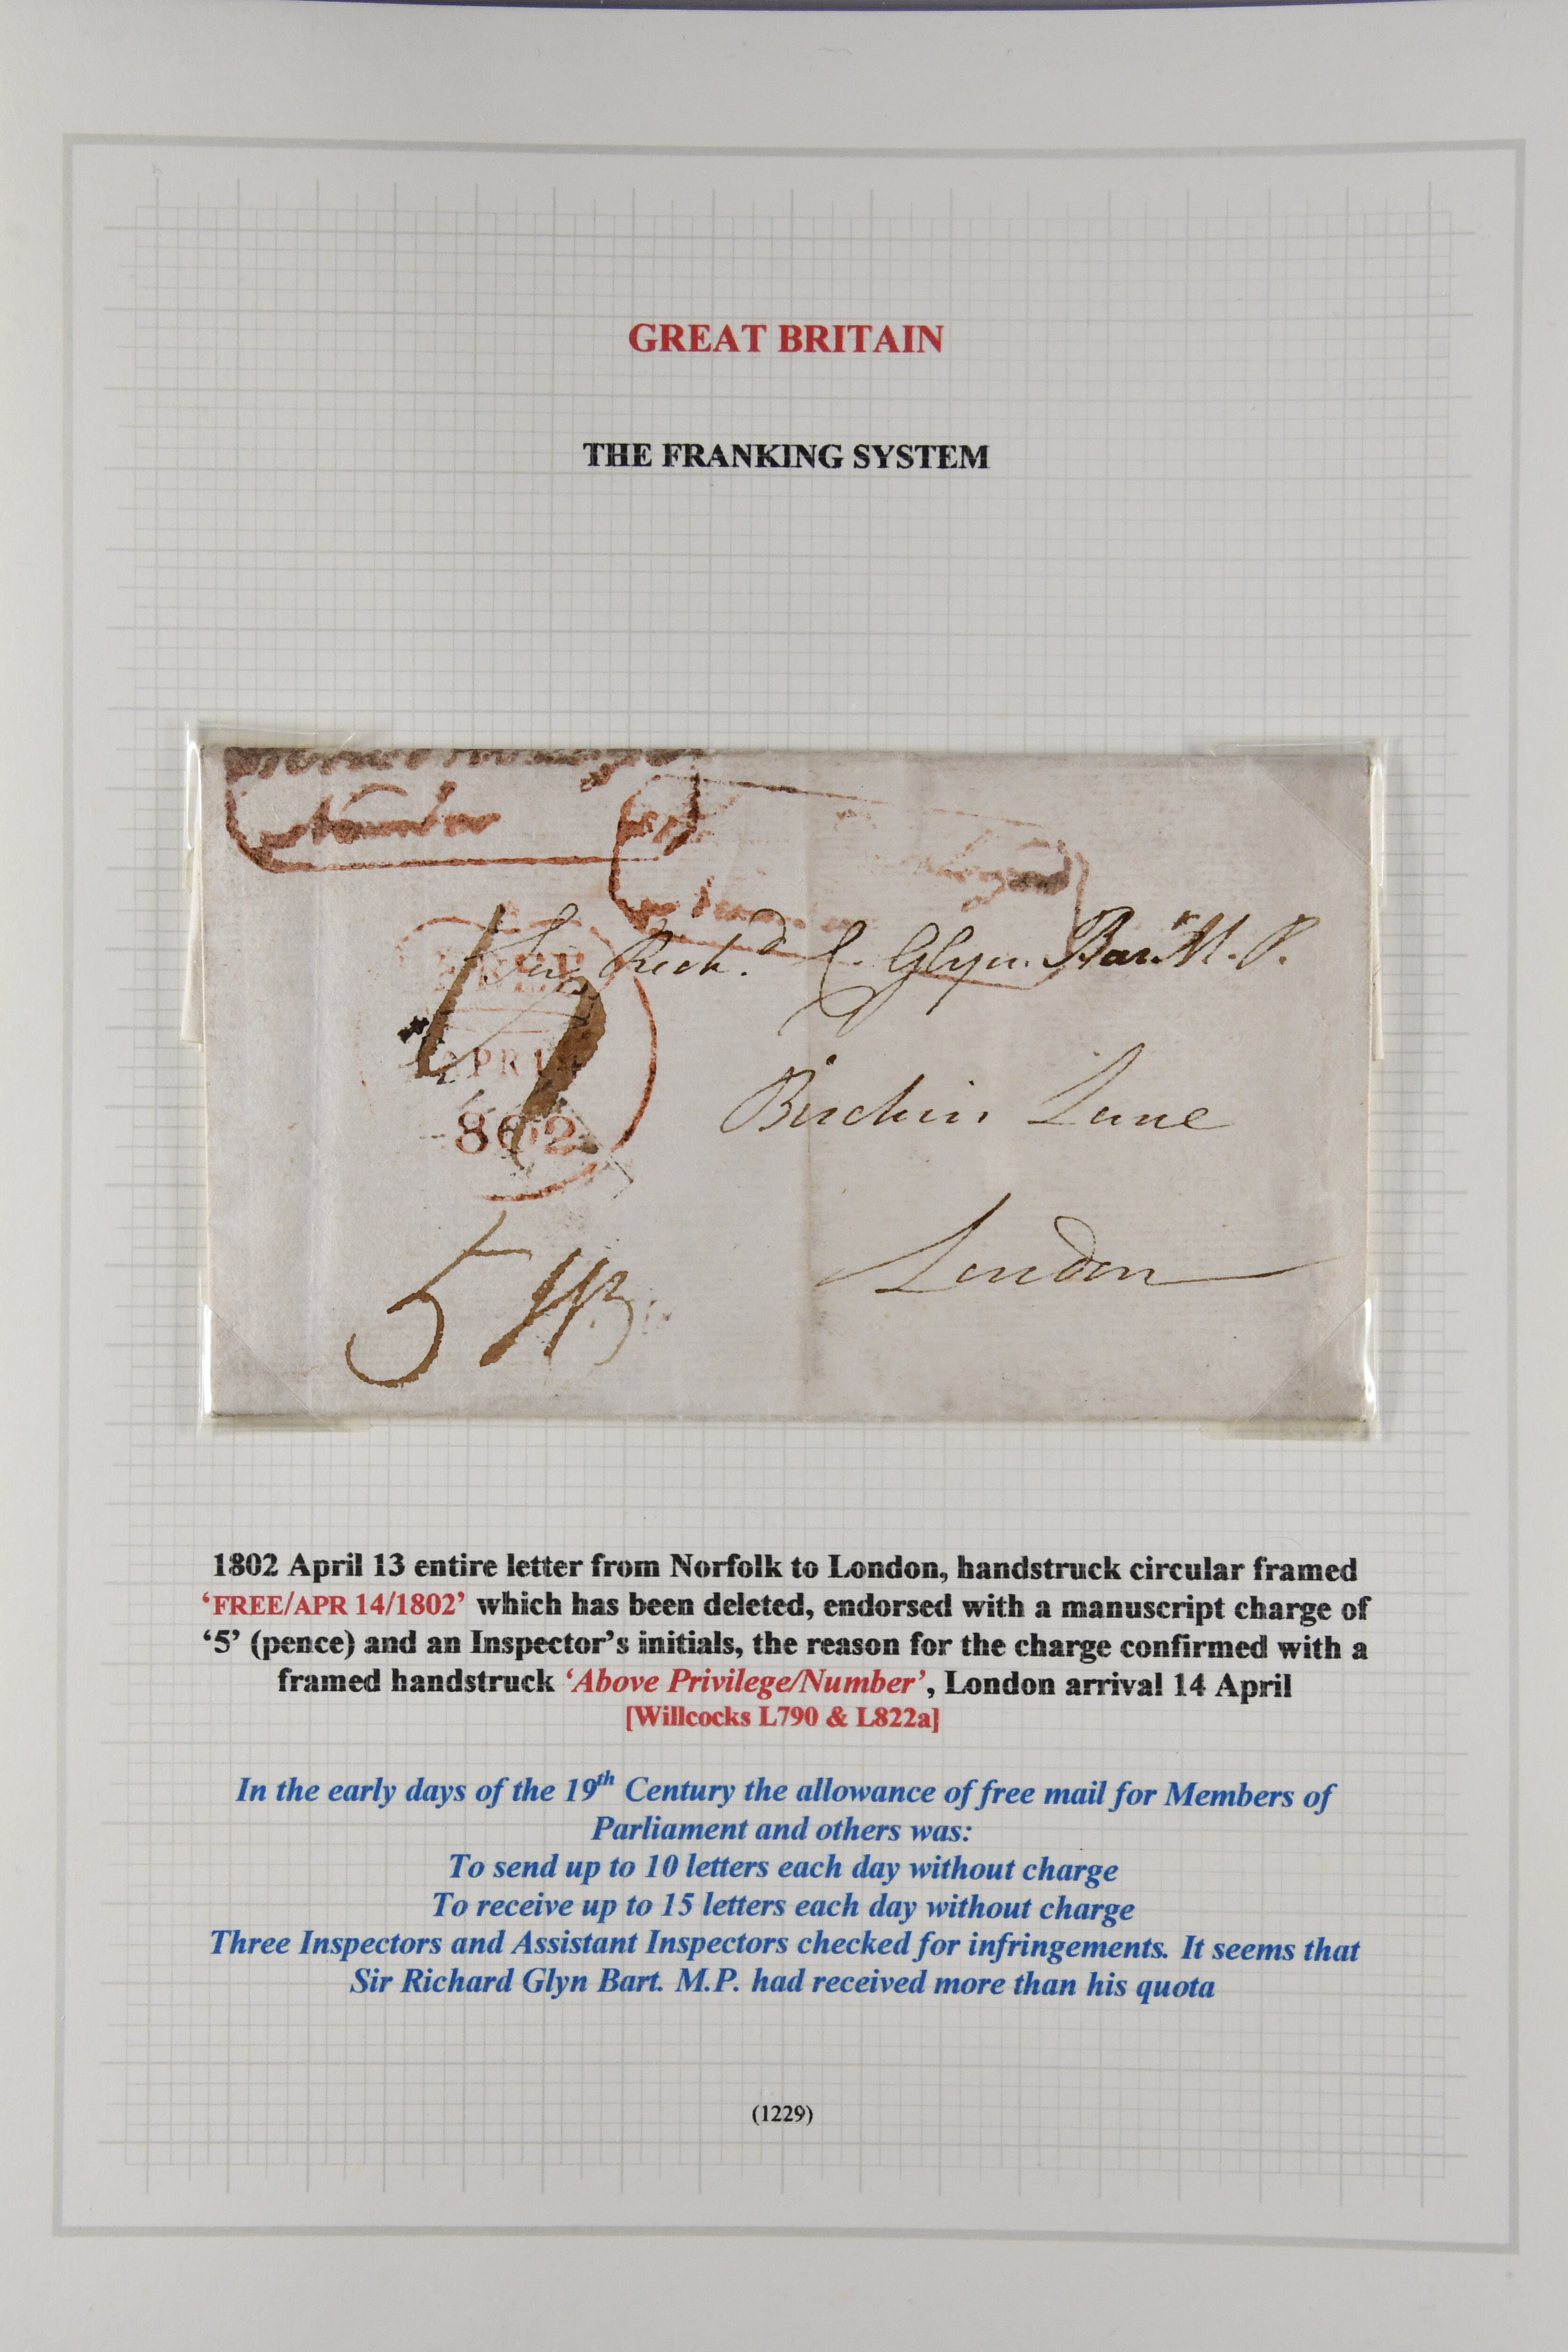 GREAT BRITAIN
THE FRANKING SYSTEM
Number
Sir Rich.d C. Glyn Bart M.P.
APR 1
802
Birchin Lane
London
5
1802 April 13 entire letter from Norfolk to London, handstruck circular framed
‘FREE/APR 14/1802’ which has been deleted, endorsed with a manuscript charge of
‘5’ (pence) and an Inspector’s initials, the reason for the charge confirmed with a
framed handstruck ‘Above Privilege/Number’, London arrival 14 April
[Willcocks L790 & L822a]
In the early days of the 19th Century the allowance of free mail for Members of
Parliament and others was:
To send up to 10 letters each day without charge
To receive up to 15 letters each day without charge
Three Inspectors and Assistant Inspectors checked for infringements. It seems that
Sir Richard Glyn Bart. M.P. had received more than his quota
(1229)